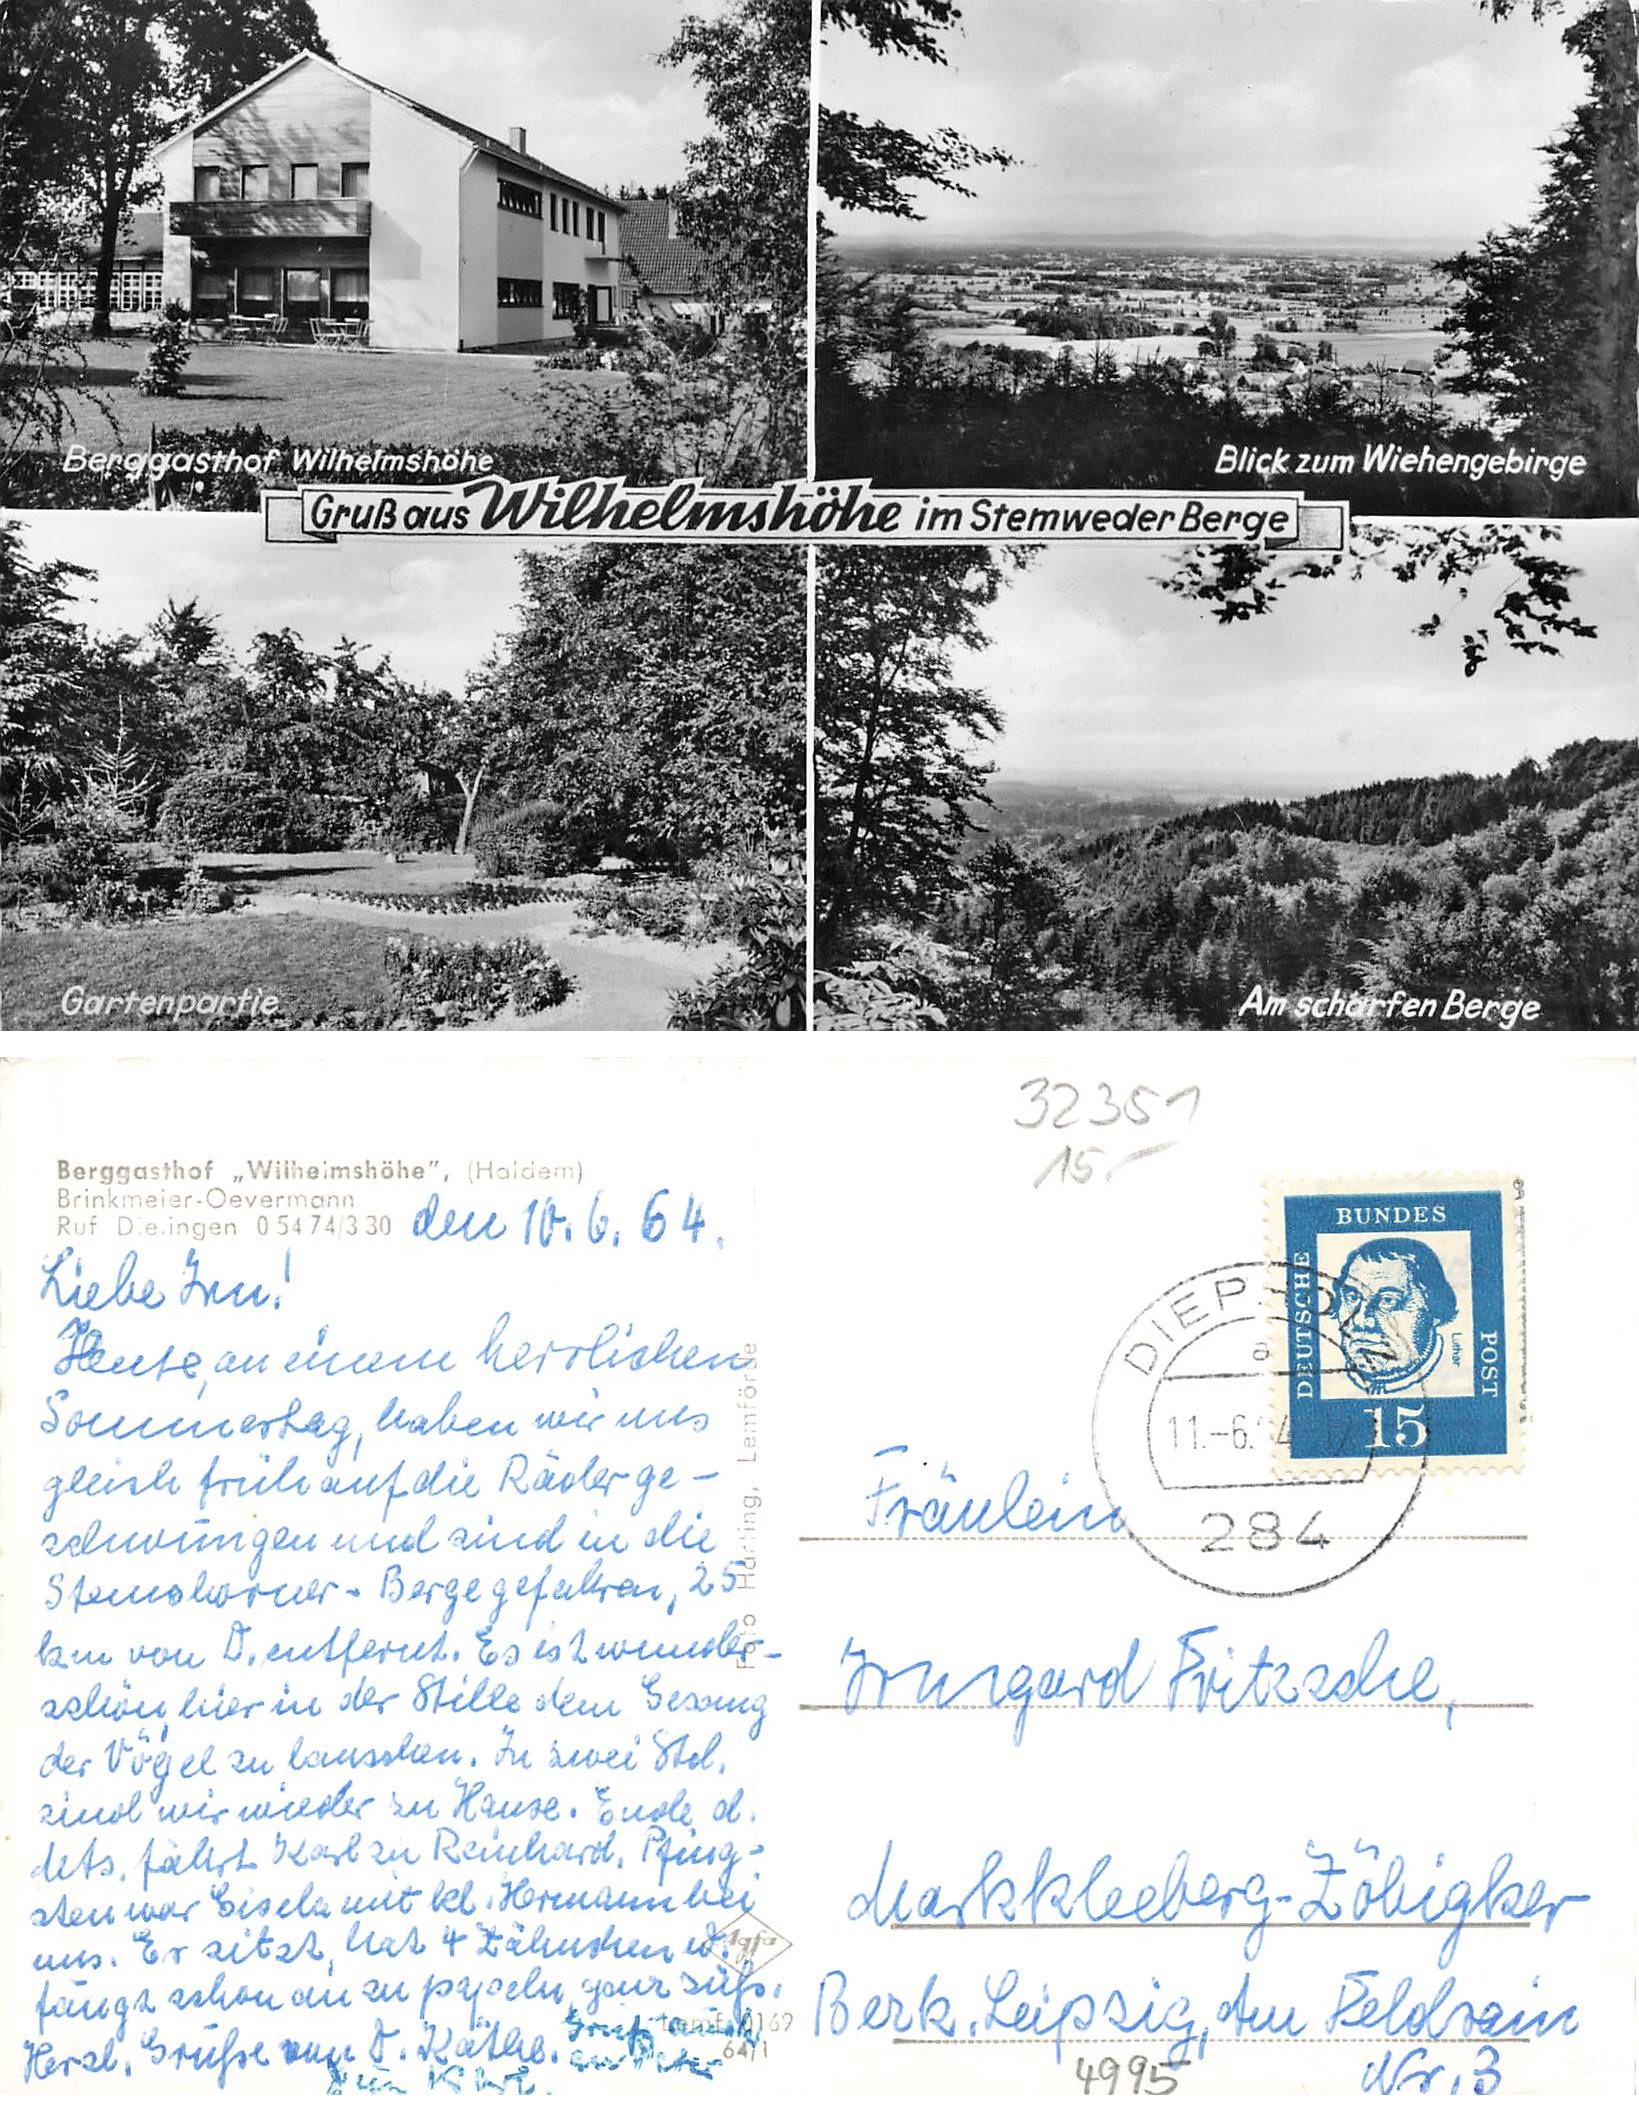 Berggasthof Wilhelmshöhe
Blick zum Wiehengebirge
Gruß aus Wilhelmshöhe im Stemweder Berge
Gartenpartie
Am scharfen Berge
32351
15.-
Berggasthof „Wilhelmshöhe”, (Haldem)
Brinkmeier-Oevermann
Ruf Dielingen 0 54 74/3 30
den 10.6.64.
Liebe Irm!
Heute, an einem herrlichen
Sommertag, haben wir uns
gleich früh auf die Räder ge-
schwungen und sind in die
Stemshorner-Berge gefahren, 25
km von D. entfernt. Es ist wunder-
schön, hier in der Stille dem Gesang
der Vögel zu lauschen. In zwei Std.
sind wir wieder zu Hause. Ende d.
Mts. fährt Karl zu Reinhard. Pfing-
sten war Gisela mit kl. Hermann bei
uns. Er sitzt, hat 4 Zähnchen u.
fängt schon an zu päpeln, ganz süß.
Herzl. Grüße von D. Käthe.
Foto Häring, Lemförde
Agfa
Lemf. 0169
64/1
BUNDES
DEUTSCHE
POST
Luther
15
DIEPHOLZ
a
11.-6.
284
Fräulein
Irmgard Fritzsche,
Markkleeberg-Zöbigker
Berk. Leipzig, Am Feldrain
Nr. 3
4995